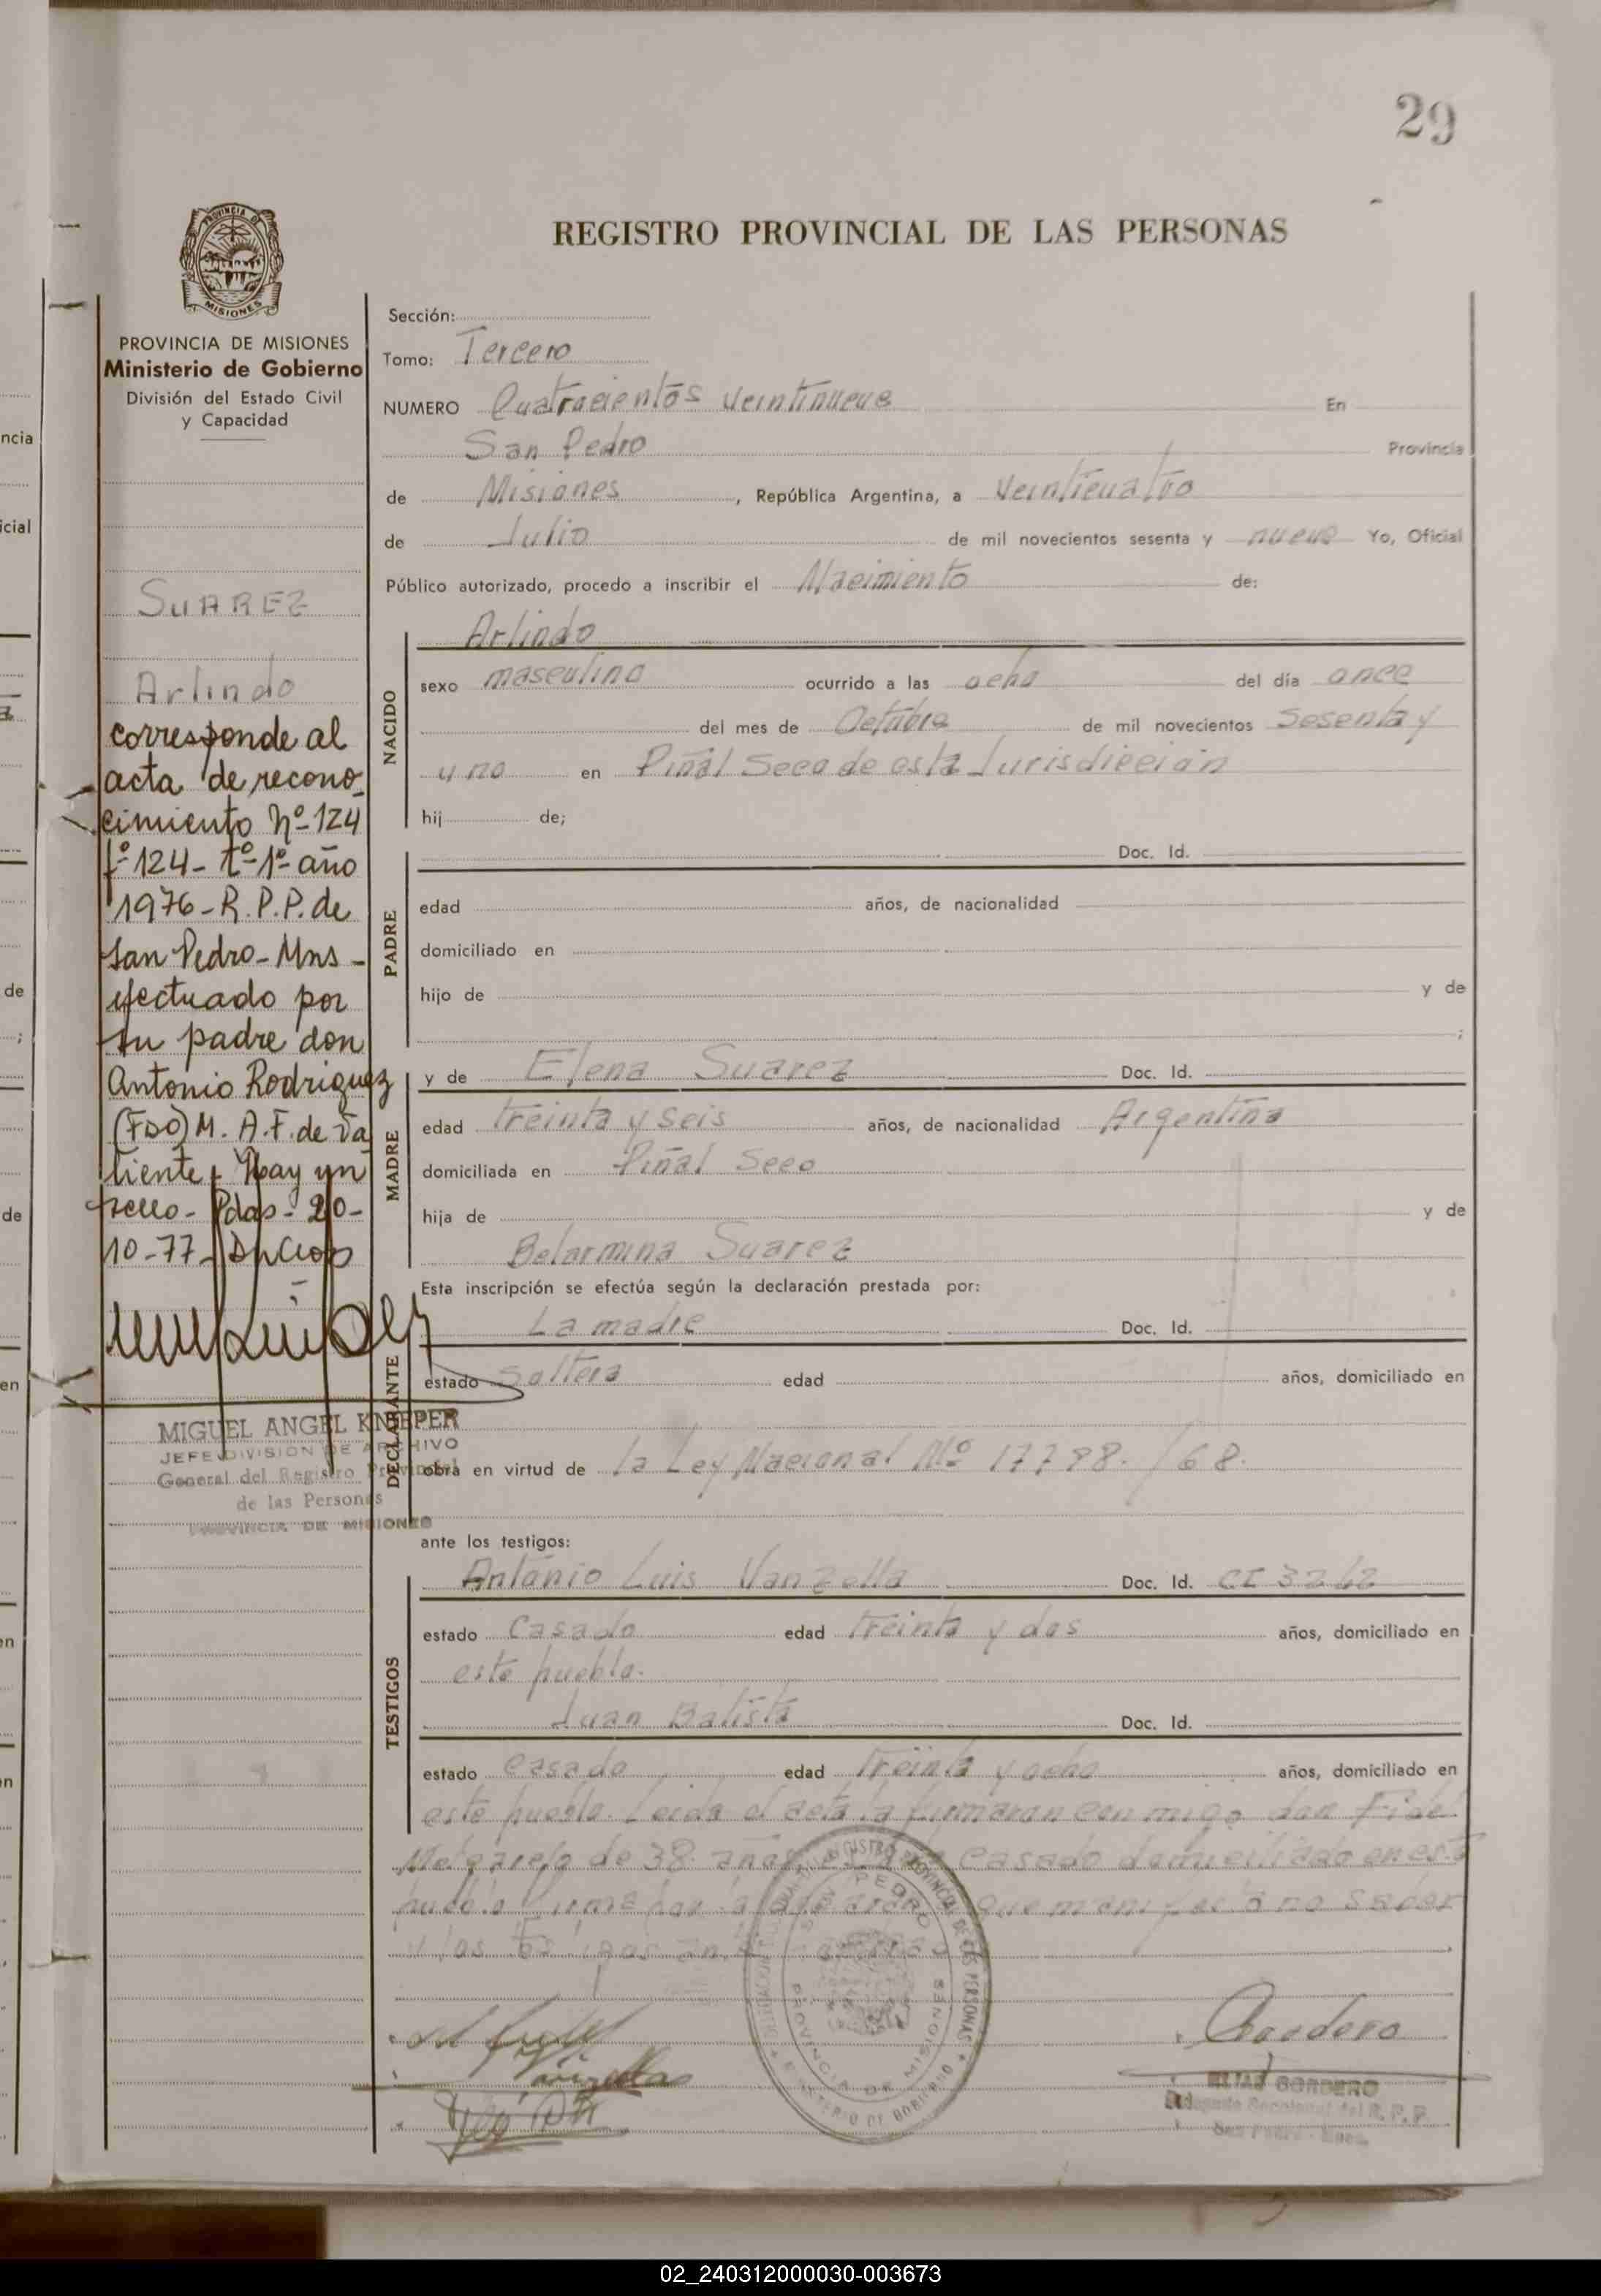 29
PROVINCIA DE
MISIONES
REGISTRO PROVINCIAL DE LAS PERSONAS
PROVINCIA DE MISIONES
Ministerio de Gobierno
División del Estado Civil
y Capacidad
SUAREZ
Arlindo
corresponde al
acta de recono-
cimiento Nº 124
fº 124 - tº 1º año
1976 - R. P. P. de
San Pedro - Mns -
efectuado por
su padre don
Antonio Rodriguez
(FDO) M. A. F. de Va
liente. Hay un
sello - Pdas - 20 -
10 - 77 -
MIGUEL ANGEL KNIEPER
JEFE DIVISION DE ARCHIVO
General del Registro Provincial
de las Personas
PROVINCIA DE MISIONES
Sección:
Tomo: Tercero
NUMERO Cuatrocientos veintinueve En
San Pedro Provincia
de Misiones, República Argentina, a veinticuatro
de Julio de mil novecientos sesenta y nueve Yo, Oficial
Público autorizado, procedo a inscribir el Nacimiento de:
NACIDO
Arlindo
sexo masculino ocurrido a las ocho del día once
del mes de Octubre de mil novecientos sesenta y
uno en Piñal Seco de esta Jurisdicción
hij de;
PADRE
Doc. Id.
edad años, de nacionalidad
domiciliado en
hijo de y de
;
MADRE
y de Elena Suarez Doc. Id.
edad treinta y seis años, de nacionalidad Argentina
domiciliada en Piñal Seco
hija de y de
Belarmina Suarez
Esta inscripción se efectúa según la declaración prestada por:
DECLARANTE
La madre Doc. Id.
estado soltera edad años, domiciliado en
obra en virtud de la Ley Nacional Nº 17798./68.
ante los testigos:
TESTIGOS
Antonio Luis Vanzella Doc. Id. CI 3262
estado casado edad treinta y dos años, domiciliado en
este pueblo.
Juan Batista Doc. Id.
estado casado edad treinta y ocho años, domiciliado en
este pueblo. Leida el acta la firmaran con migo don Fidel
Melgarejo de 38 años casado domiciliado en este
pueblo firma por la que manifesto no saber
y los testigos
SAN PEDRO
PROVINCIA DE MISIONES
Cordero
ELIAS CORDERO
Delegado Seccional del R. P. P.
San Pedro - Mnes.
02_240312000030-003673